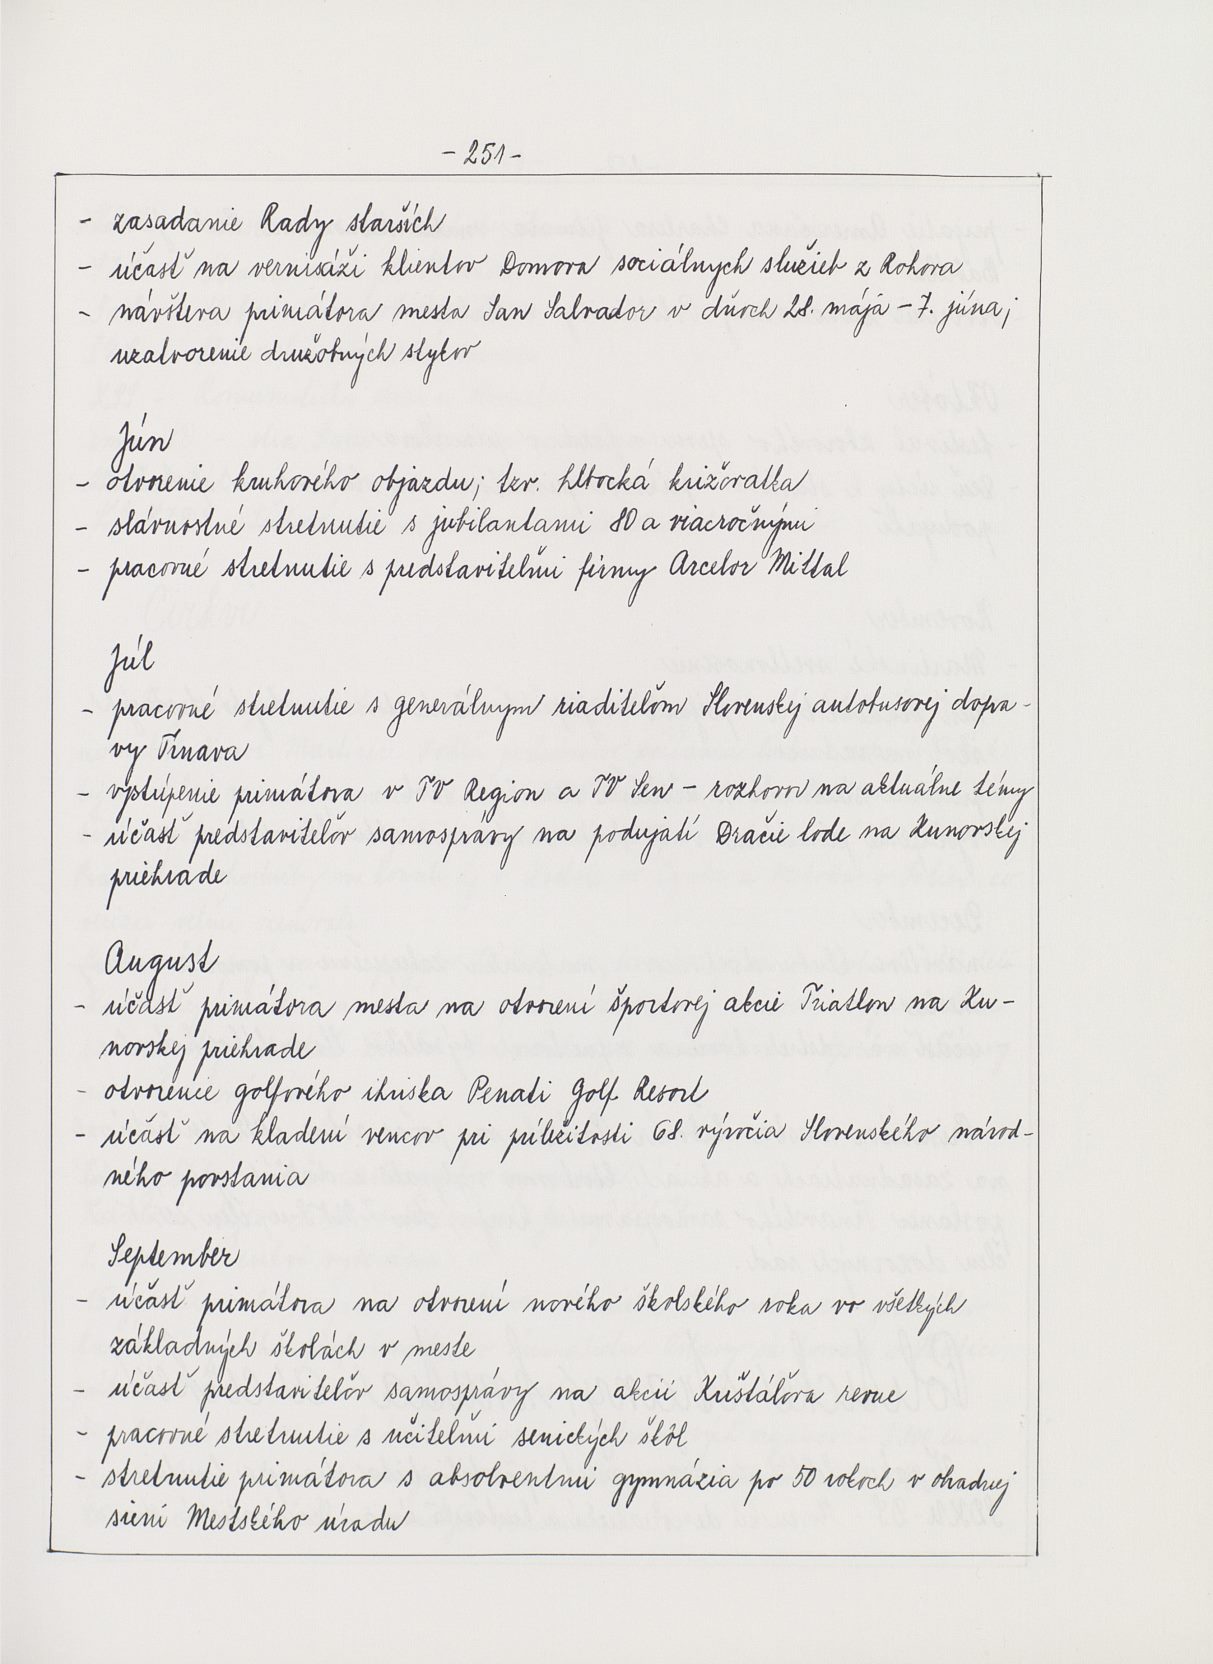 - 251 -
- zasadanie Rady starších
- účasť na vernisáži klientov Domova sociálnych služieb z Rohova
- návšteva primátora mesta San Salvador v dňoch 28. mája - 7. júna;
uzatvorenie družobných stykov
Jún
- otvorenie kruhového objazdu; tzv. hlbocká križovatka
- slávnostné stretnutie s jubilantami 80 a viacročnými
- pracovné stretnutie s predstaviteľmi firmy Arcelor Mittal
Júl
- pracovné stretnutie s generálnym riaditeľom Slovenskej autobusovej dopra-
vy Trnava
- vystúpenie primátora v TV Region a TV Sen - rozhovor na aktuálne témy
- účasť predstaviteľov samosprávy na podujatí Dračie lode na Kunovskej
priehrade
August
- účasť primátora mesta na otvorení športovej akcie Triatlon na Ku-
novskej priehrade
- otvorenie golfového ihriska Penati Golf Resort
- účasť na kladení vencov pri príležitosti 68. výročia Slovenského národ-
ného povstania
September
- účasť primátora na otvorení nového školského roka vo všetkých
základných školách v meste
- účasť predstaviteľov samosprávy na akcii Krištáľova revue
- pracovné stretnutie s učiteľmi senických škôl
- stretnutie primátora s absolventmi gymnázia po 50 rokoch v obradnej
sieni Mestského úradu